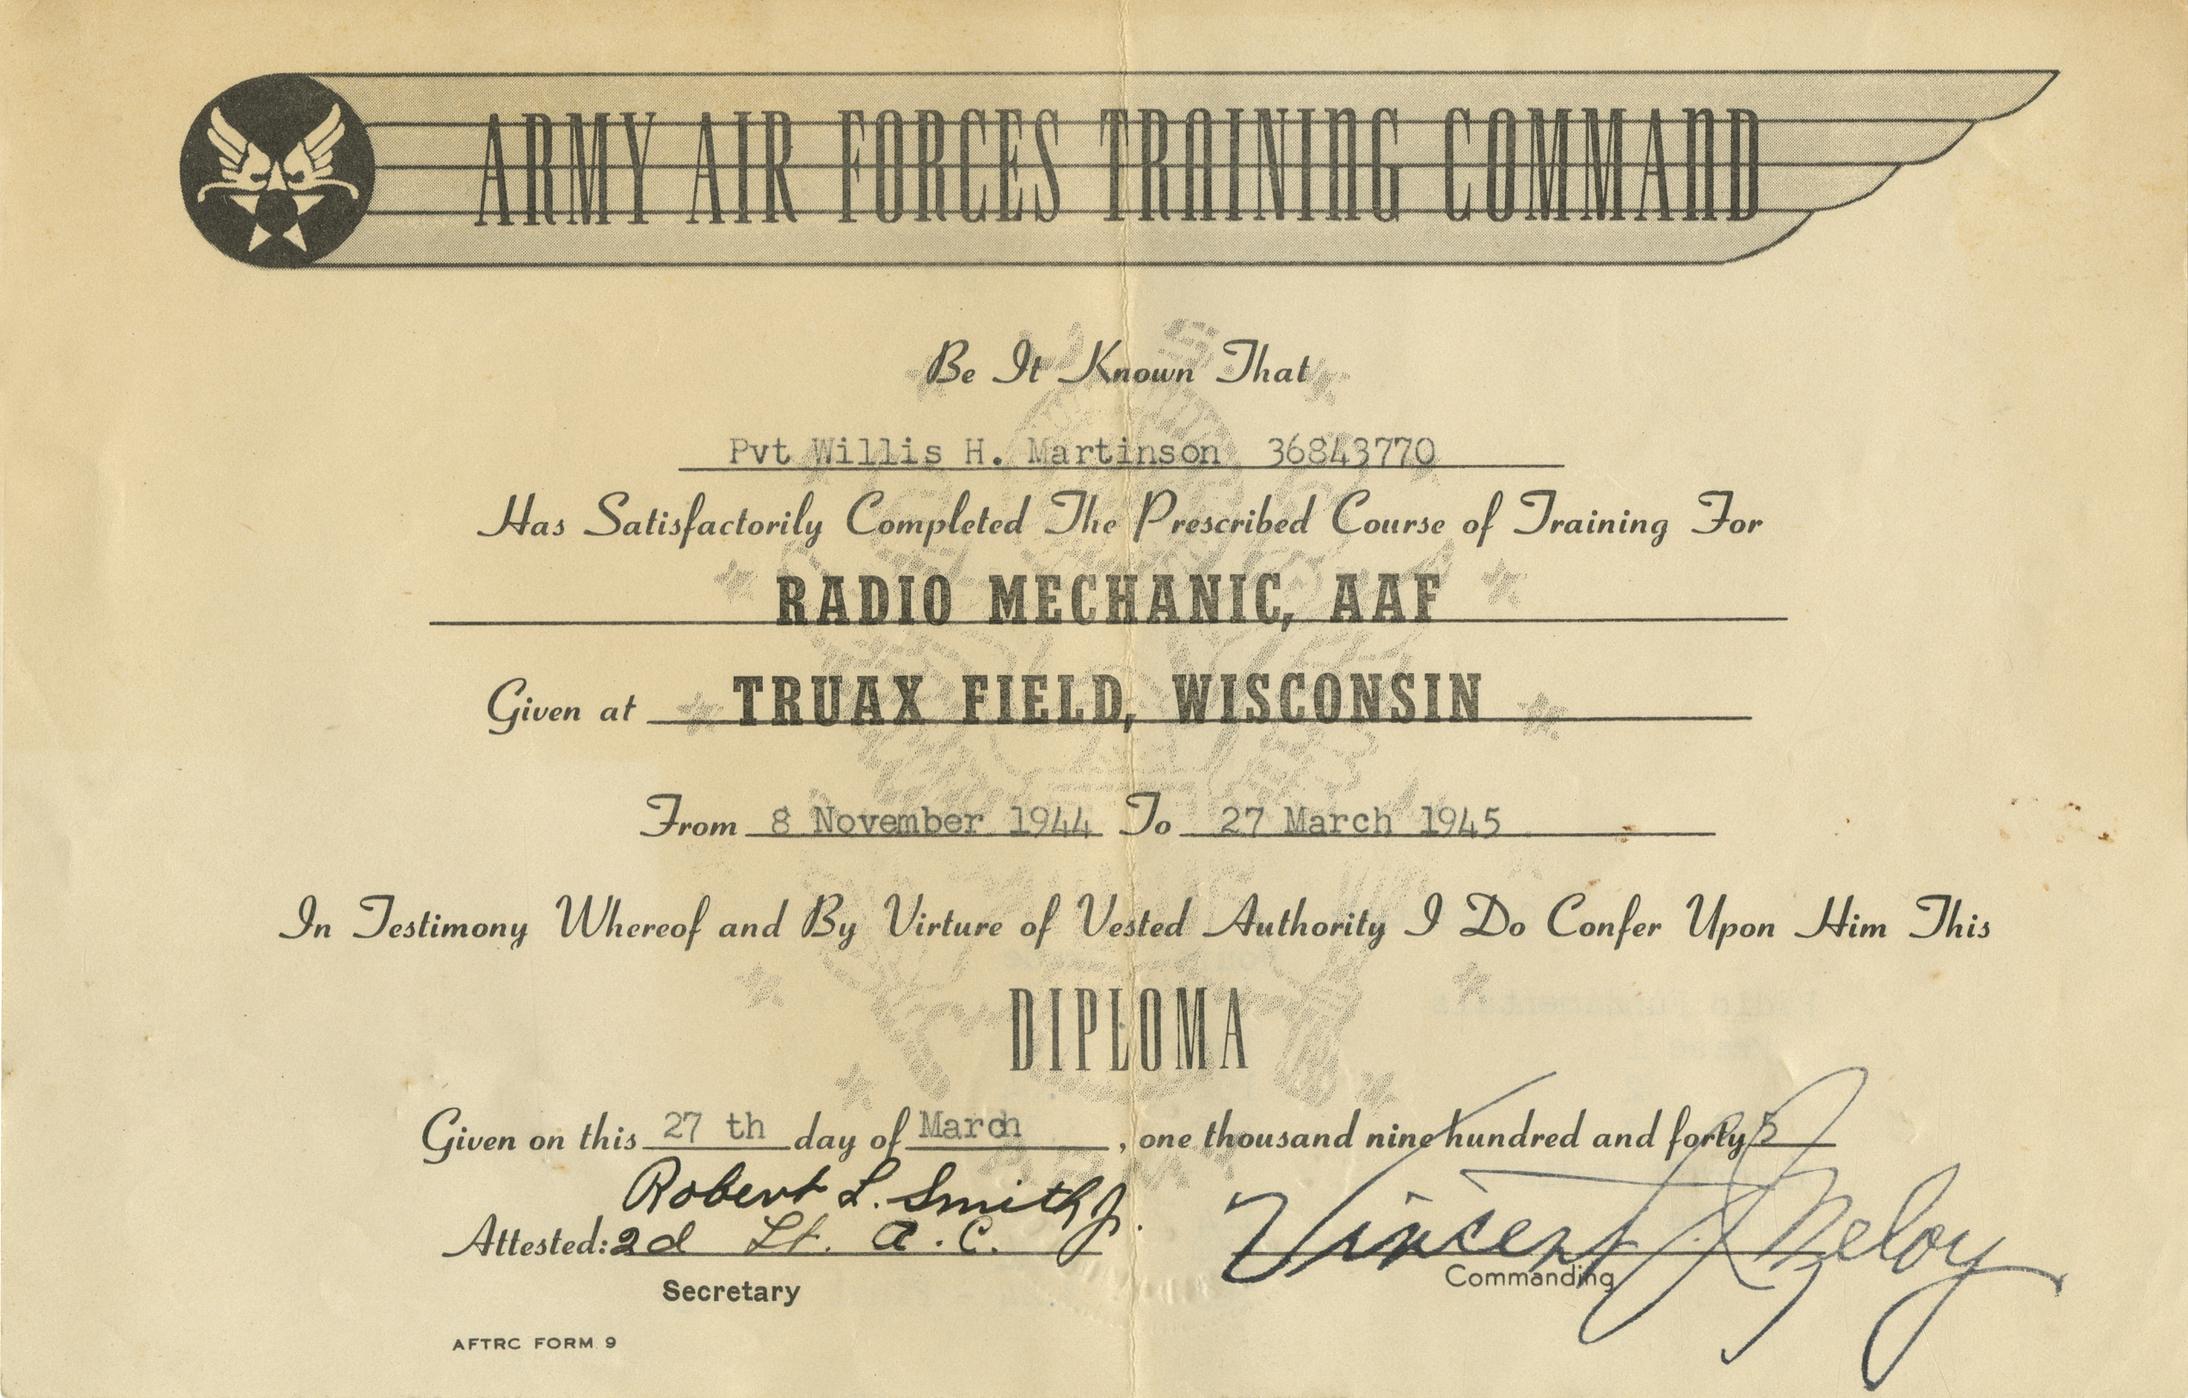 ARMY AIR FORCES TRAINING COMMAND
Be It Known That
Pvt Willis H. Martinson 36843770
Has Satisfactorily Completed The Prescribed Course of Training For
RADIO MECHANIC, AAF
Given at TRUAX FIELD, WISCONSIN
From 8 November 1944 To 27 March 1945
In Testimony Whereof and By Virture of Vested Authority I Do Confer Upon Him This
DIPLOMA
Given on this 27 th day of March, one thousand nine hundred and forty 5
Robert L. Smith Jr.
Attested: 2d Lt. A.C.
Vincent J Meloy
Secretary
Commanding
AFTRC FORM 9